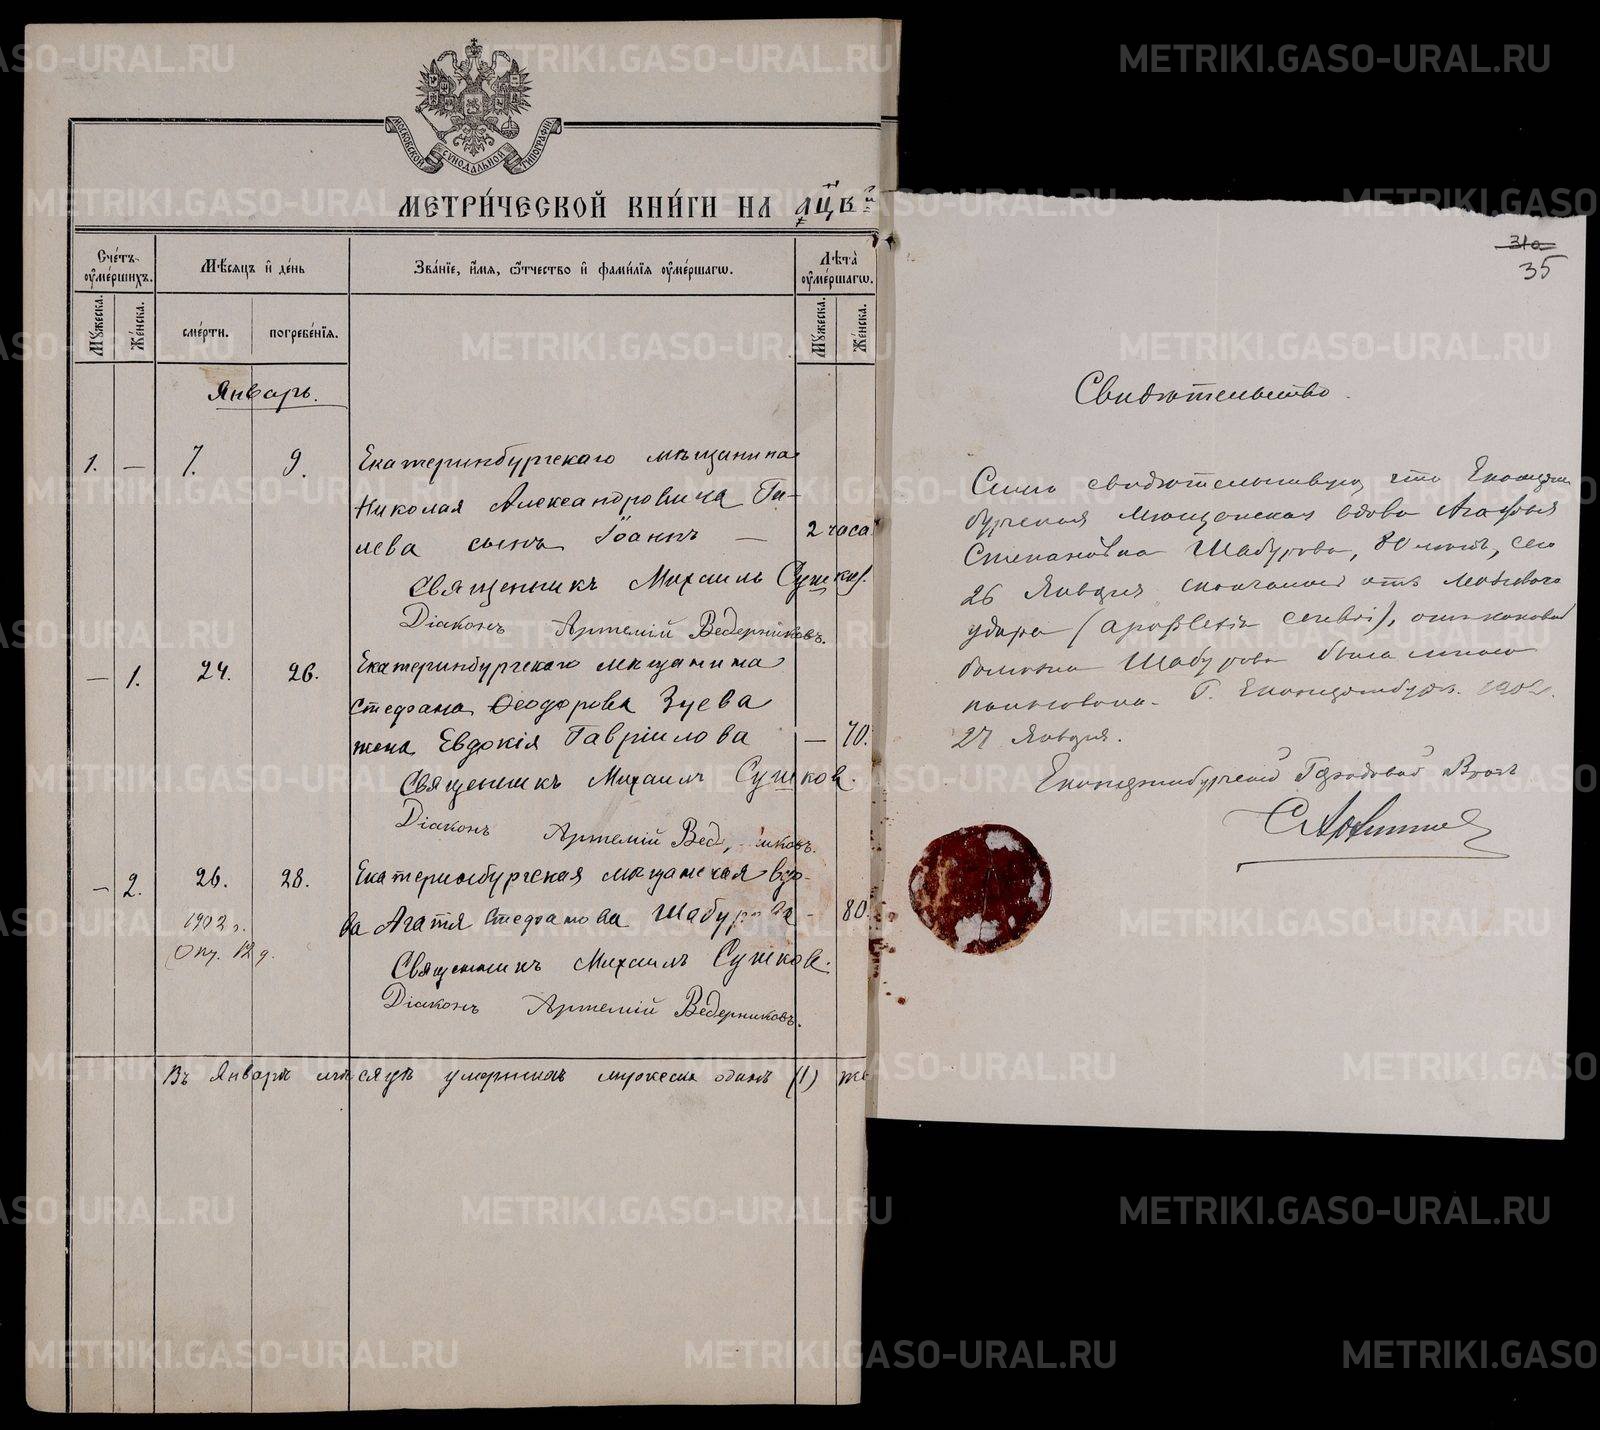 МОСКОВСКОЙ СѴНОДАЛЬНОЙ ТИПОГРАФІИ
МЕТРИ́ЧЕСКОЙ КНИ́ГИ НА ҂АЦВ
Сче́тъ оуме́ршихъ.
Мѣ́сяцъ и де́нь
Зва́нїе, и́мя, ѻ́тчество и фами́лїя оуме́ршагѡ.
Лѣта̀ оуме́ршагѡ.
Мꙋжеска.
Же́нска.
сме́рти.
погребе́нїя.
Мꙋжеска.
Же́нска.
Январь.
1. — 7. 9. Екатеринбургскаго мѣщанина
Николая Александровича Ги-
лева сынъ Іоаннъ — 2 часа
Священникъ Михаилъ Сушковъ.
Діаконъ Артемій Ведерниковъ.
— 1. 24. 26. Екатеринбургскаго мѣщанина
Стефана Ѳеодорова Зуева
жена Евдокія Гавріилова — 70.
Священникъ Михаилъ Сушков.
Діаконъ Артемій Вед иковъ.
— 2. 26. 28. Екатеринбургская мѣщанская вдо-
1902 г.
ва Агатія Стефанова Шабурова - 80.
Опу. 12 д.
Священникъ Михаилъ Сушков.
Діаконъ Артемій Ведерниковъ.
Въ Январѣ мѣсяцѣ умершихъ мужеска одинъ (1) же
310
35
Свидѣтельство.
Симъ свидѣтельствую, что Екатерин
бургская мѣщанская вдова Агафья
Степановна Шабурова, 80 лѣтъ, сего
26 Января скончалась отъ мозгового
удара (apoplexia cerebri), отъ каковой
болѣзни Шабурова была мною
пользована. Г. Екатеринбургъ. 1902.
27 Января.
Екатеринбургский Городовой Врачъ
METRIKI.GASO-URAL.RU